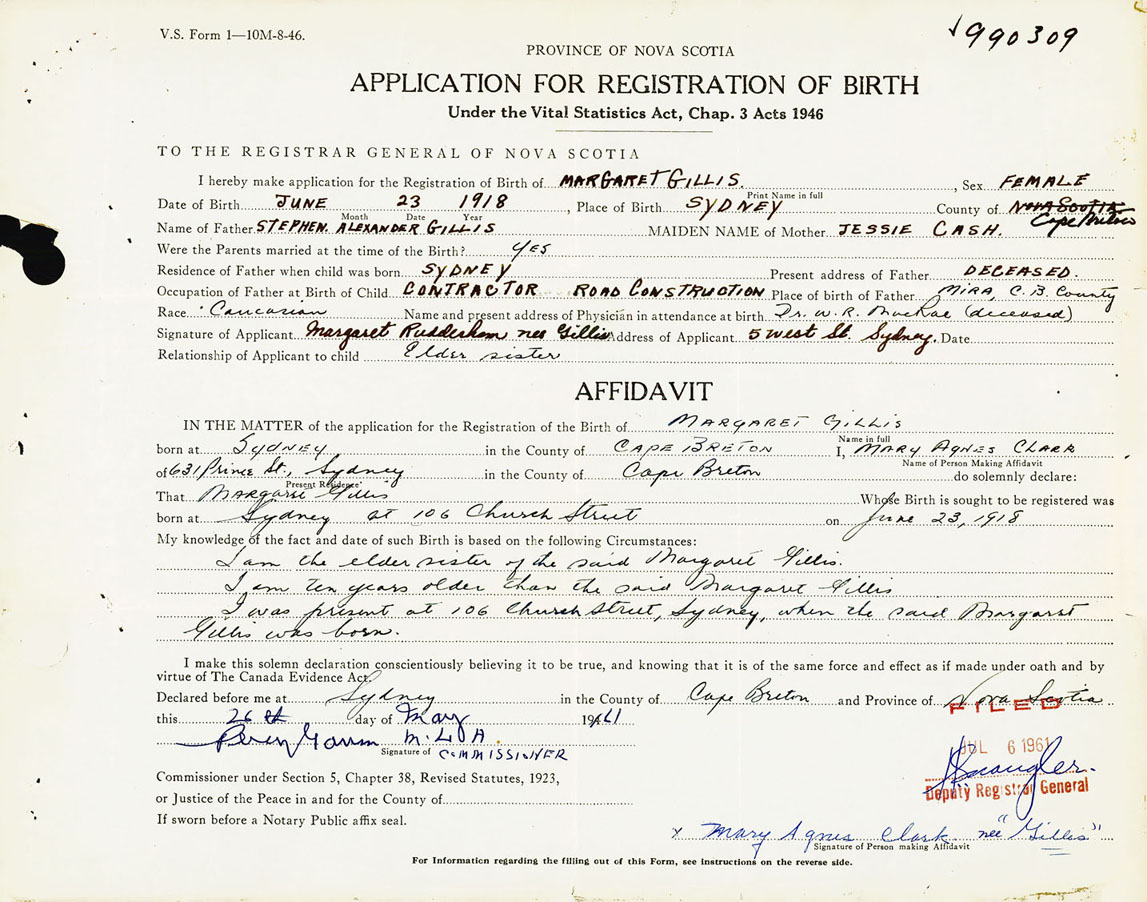 V.S. Form 1—10M-8-46.
990309
PROVINCE OF NOVA SCOTIA
APPLICATION FOR REGISTRATION OF BIRTH
Under the Vital Statistics Act, Chap. 3 Acts 1946
TO THE REGISTRAR GENERAL OF NOVA SCOTIA
I hereby make application for the Registration of Birth of MARGARET GILLIS. , Sex FEMALE
Print Name in full
Date of Birth JUNE 23 1918 , Place of Birth SYDNEY County of NOVA SCOTIA Cape Breton
Month Date Year
Name of Father STEPHEN ALEXANDER GILLIS MAIDEN NAME of Mother JESSIE CASH.
Were the Parents married at the time of the Birth? YES
Residence of Father when child was born SYDNEY Present address of Father DECEASED.
Occupation of Father at Birth of Child CONTRACTOR ROAD CONSTRUCTION Place of birth of Father MIRA, C.B. County
Race Caucasian Name and present address of Physician in attendance at birth Dr. W. R. MacRae (deceased)
Signature of Applicant Margaret Rudderham nee Gillis Address of Applicant 5 West St. Sydney. Date
Relationship of Applicant to child Elder sister
AFFIDAVIT
IN THE MATTER of the application for the Registration of the Birth of MARGARET GILLIS
Name in full
born at SYDNEY in the County of CAPE BRETON I, MARY AGNES CLARK
Name of Person Making Affidavit
of 631 Prince St., Sydney in the County of Cape Breton do solemnly declare:
Present Residence
That Margaret Gillis Whose Birth is sought to be registered was
born at Sydney at 106 Church Street on June 23, 1918
My knowledge of the fact and date of such Birth is based on the following Circumstances:
I am the elder sister of the said Margaret Gillis.
I am ten years older than the said Margaret Gillis
I was present at 106 Church Street, Sydney, when the said Margaret
Gillis was born.
I make this solemn declaration conscientiously believing it to be true, and knowing that it is of the same force and effect as if made under oath and by
virtue of The Canada Evidence Act.
Declared before me at Sydney in the County of Cape Breton and Province of Nova Scotia
FILED
this 26th day of May 1961
M.L.A.
Signature of COMMISSIONER
JUL 6 1961
Deputy Registrar General
Commissioner under Section 5, Chapter 38, Revised Statutes, 1923,
or Justice of the Peace in and for the County of
If sworn before a Notary Public affix seal.
x Mary Agnes Clark nee "Gillis"
Signature of Person making Affidavit
For Information regarding the filling out of this Form, see instructions on the reverse side.